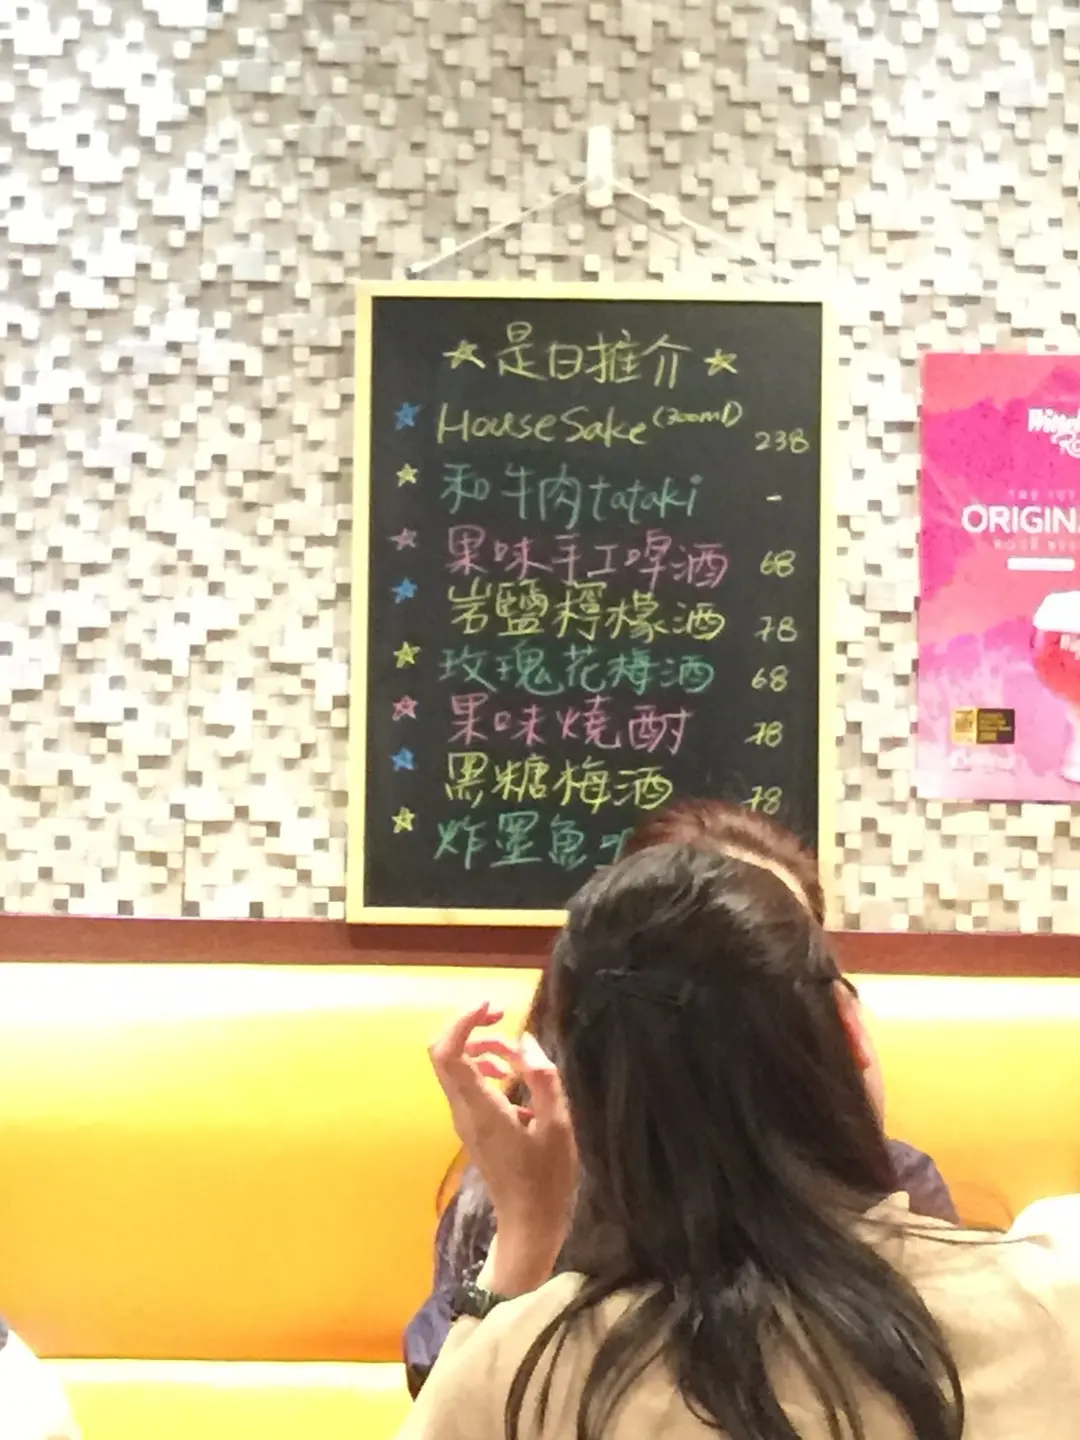 是日推介
House Sake (300ml) 238
和牛肉tataki -
果味手工啤酒 68
岩鹽檸檬酒 78
玫瑰花梅酒 68
果味燒酎 78
黑糖梅酒 78
炸墨魚
ORIGIN